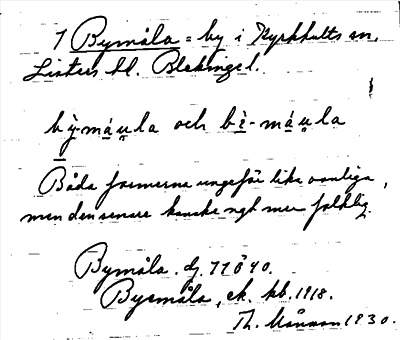 1 Bymåla = by i Kyrkhults sn,
Listers hd. Blekinge l.
bỳ-máu̯la och bè-máu̯la
Båda formerna ungefär lika vanliga,
men den senare kanske ngt mer folklig.
Bymåla. dj. 1840.
Byemåla, ek. kb. 1918.
Th. Månsson 1930.